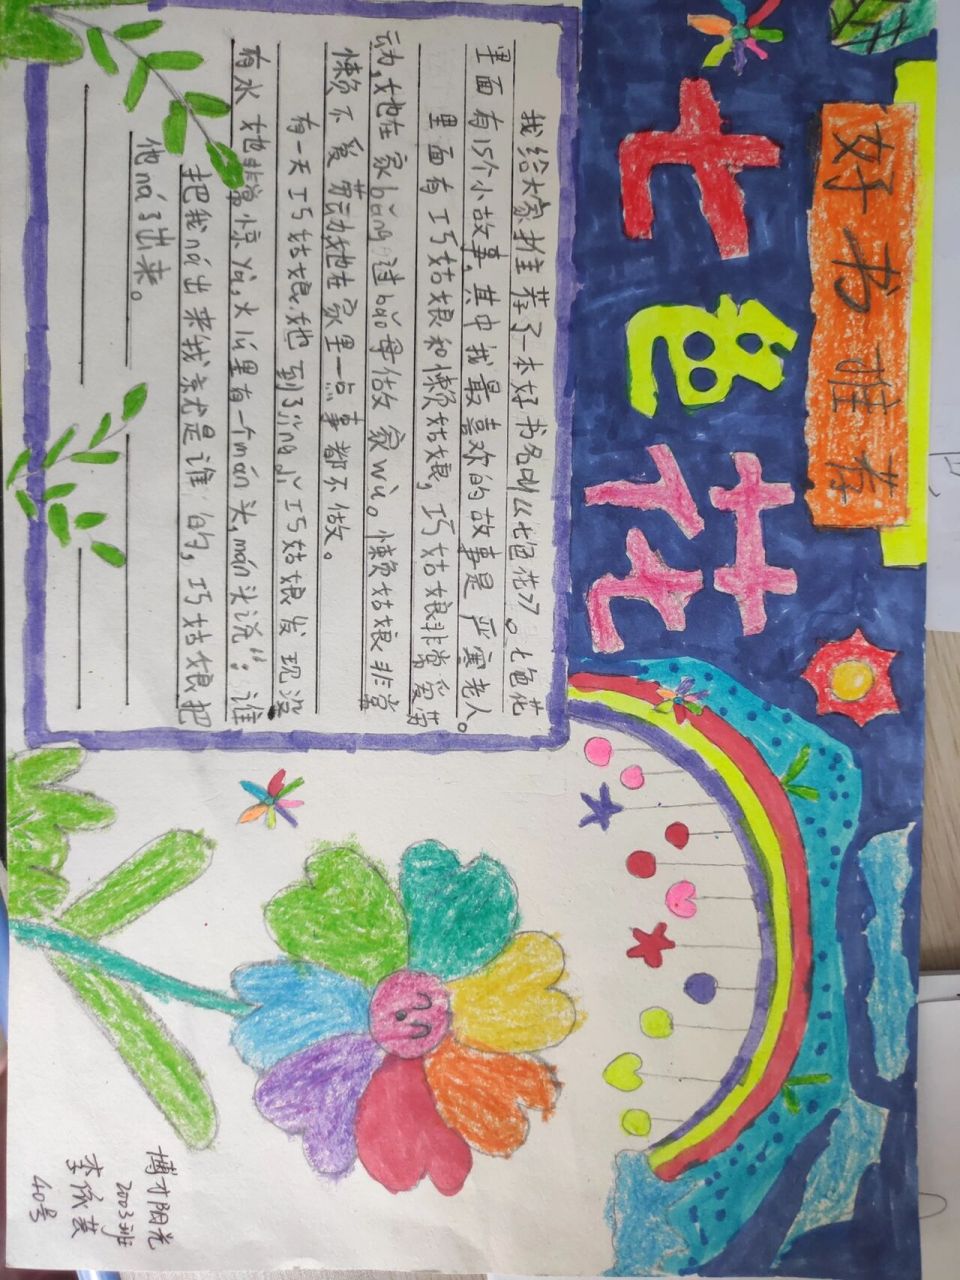 好书推荐
七色花
我给大家推荐了一本好书名叫《七色花》。七色花
里面有15个小故事，其中我最喜欢的故事是严寒老人。
里面有巧姑娘和懒姑娘，巧姑娘非常爱劳
动，她在家bāng过bǎo母做家wù。懒姑娘非常
懒不爱劳动她在家里一点事都不做。
有一天巧姑娘她到了jǐng小巧姑娘发现没
有水她非常惊yà，火儿里有一个mán头，mán头说“：谁
把我ná出来我就是谁的，巧姑娘把
他ná了出来。
博才阳光
2003班
40号